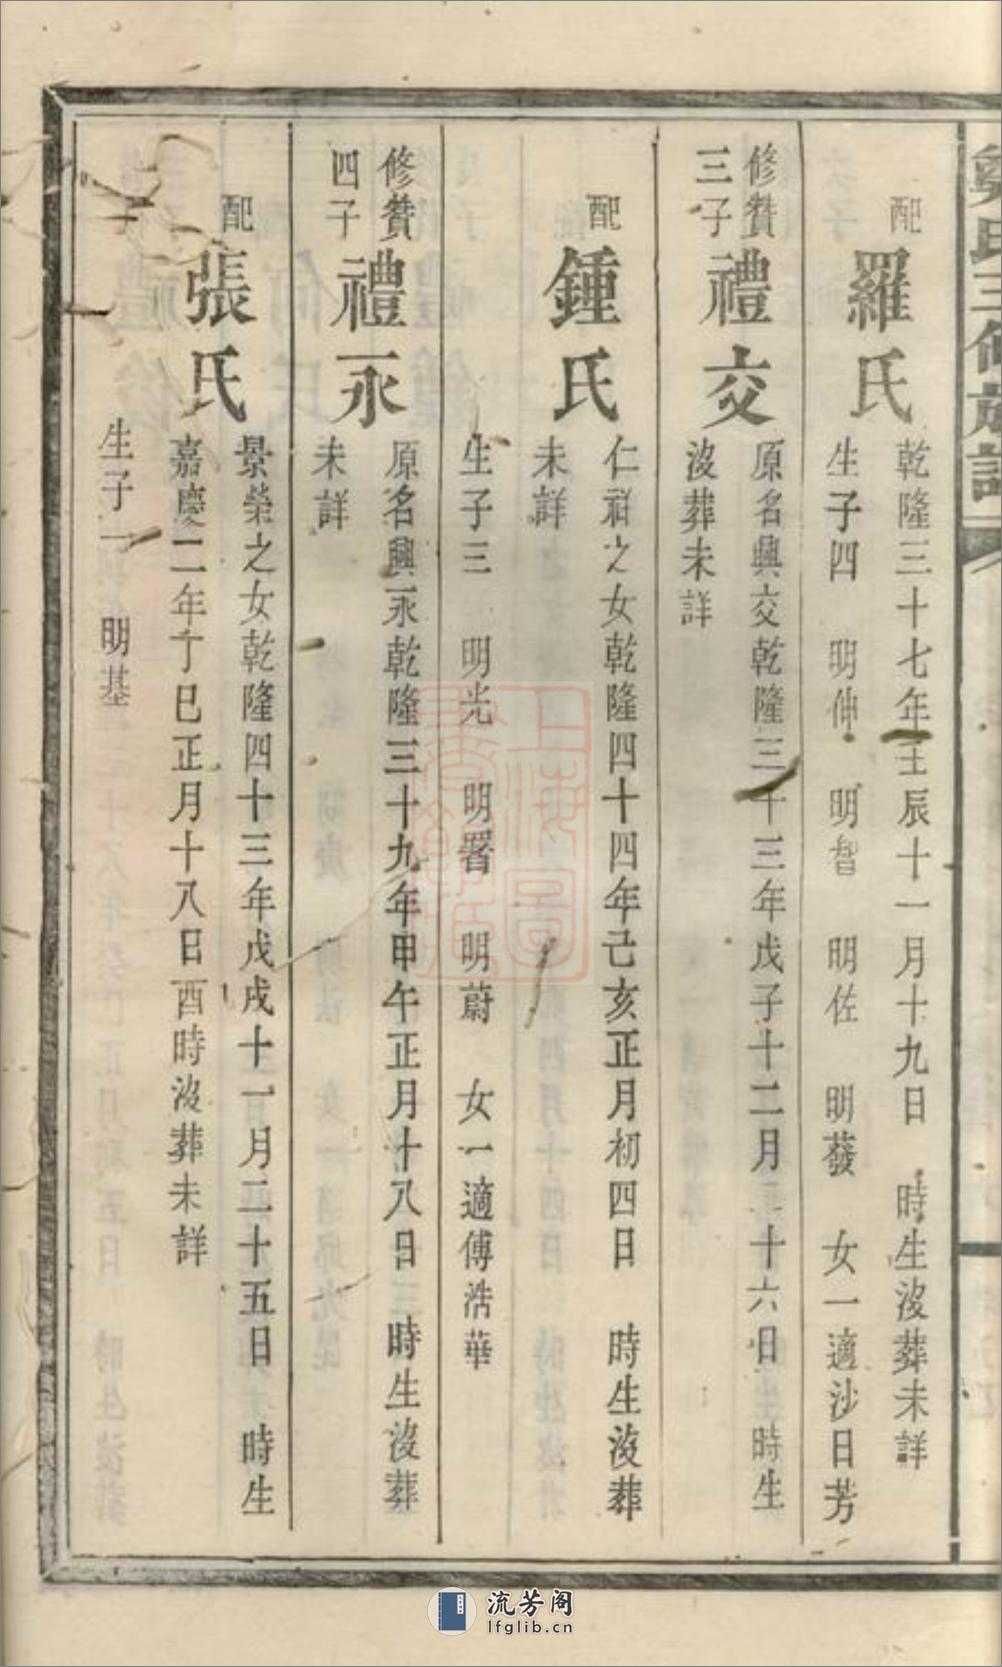 氏三修族譜
配羅氏乾隆三十七年壬辰十一月十九日 時生沒葬未詳
生子四 明伸 明智 明佐 明發 女一適沙日芳
修贊三子禮交原名興交乾隆三十三年戊子十二月二十六日 時生
沒葬未詳
配鍾氏仁祥之女乾隆四十四年己亥正月初四日 時生沒葬
未詳
生子三 明光 明署 明蔚 女一適傅浩華
修贊四子禮永原名興永乾隆三十九年甲午正月十八日 時生沒葬
未詳
配張氏景榮之女乾隆四十三年戊戌十一月二十五日 時生
嘉慶二年丁巳正月十八日酉時沒葬未詳
生子一 明基
上海圖書館藏
流芳阁
lfglib.cn